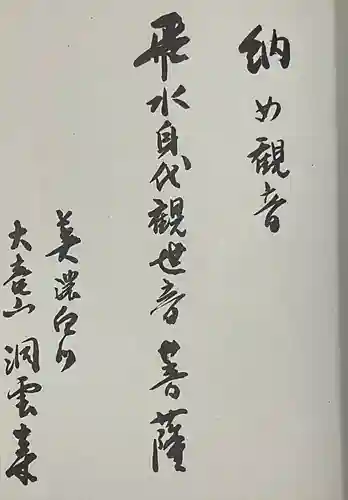 納め観音
飛水身代観世音菩薩
美濃白川
大喜山 洞雲寺